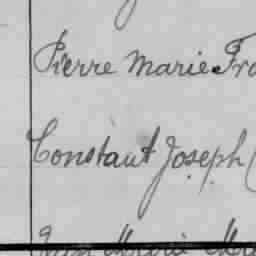 Pierre Marie Fra
Constant Joseph